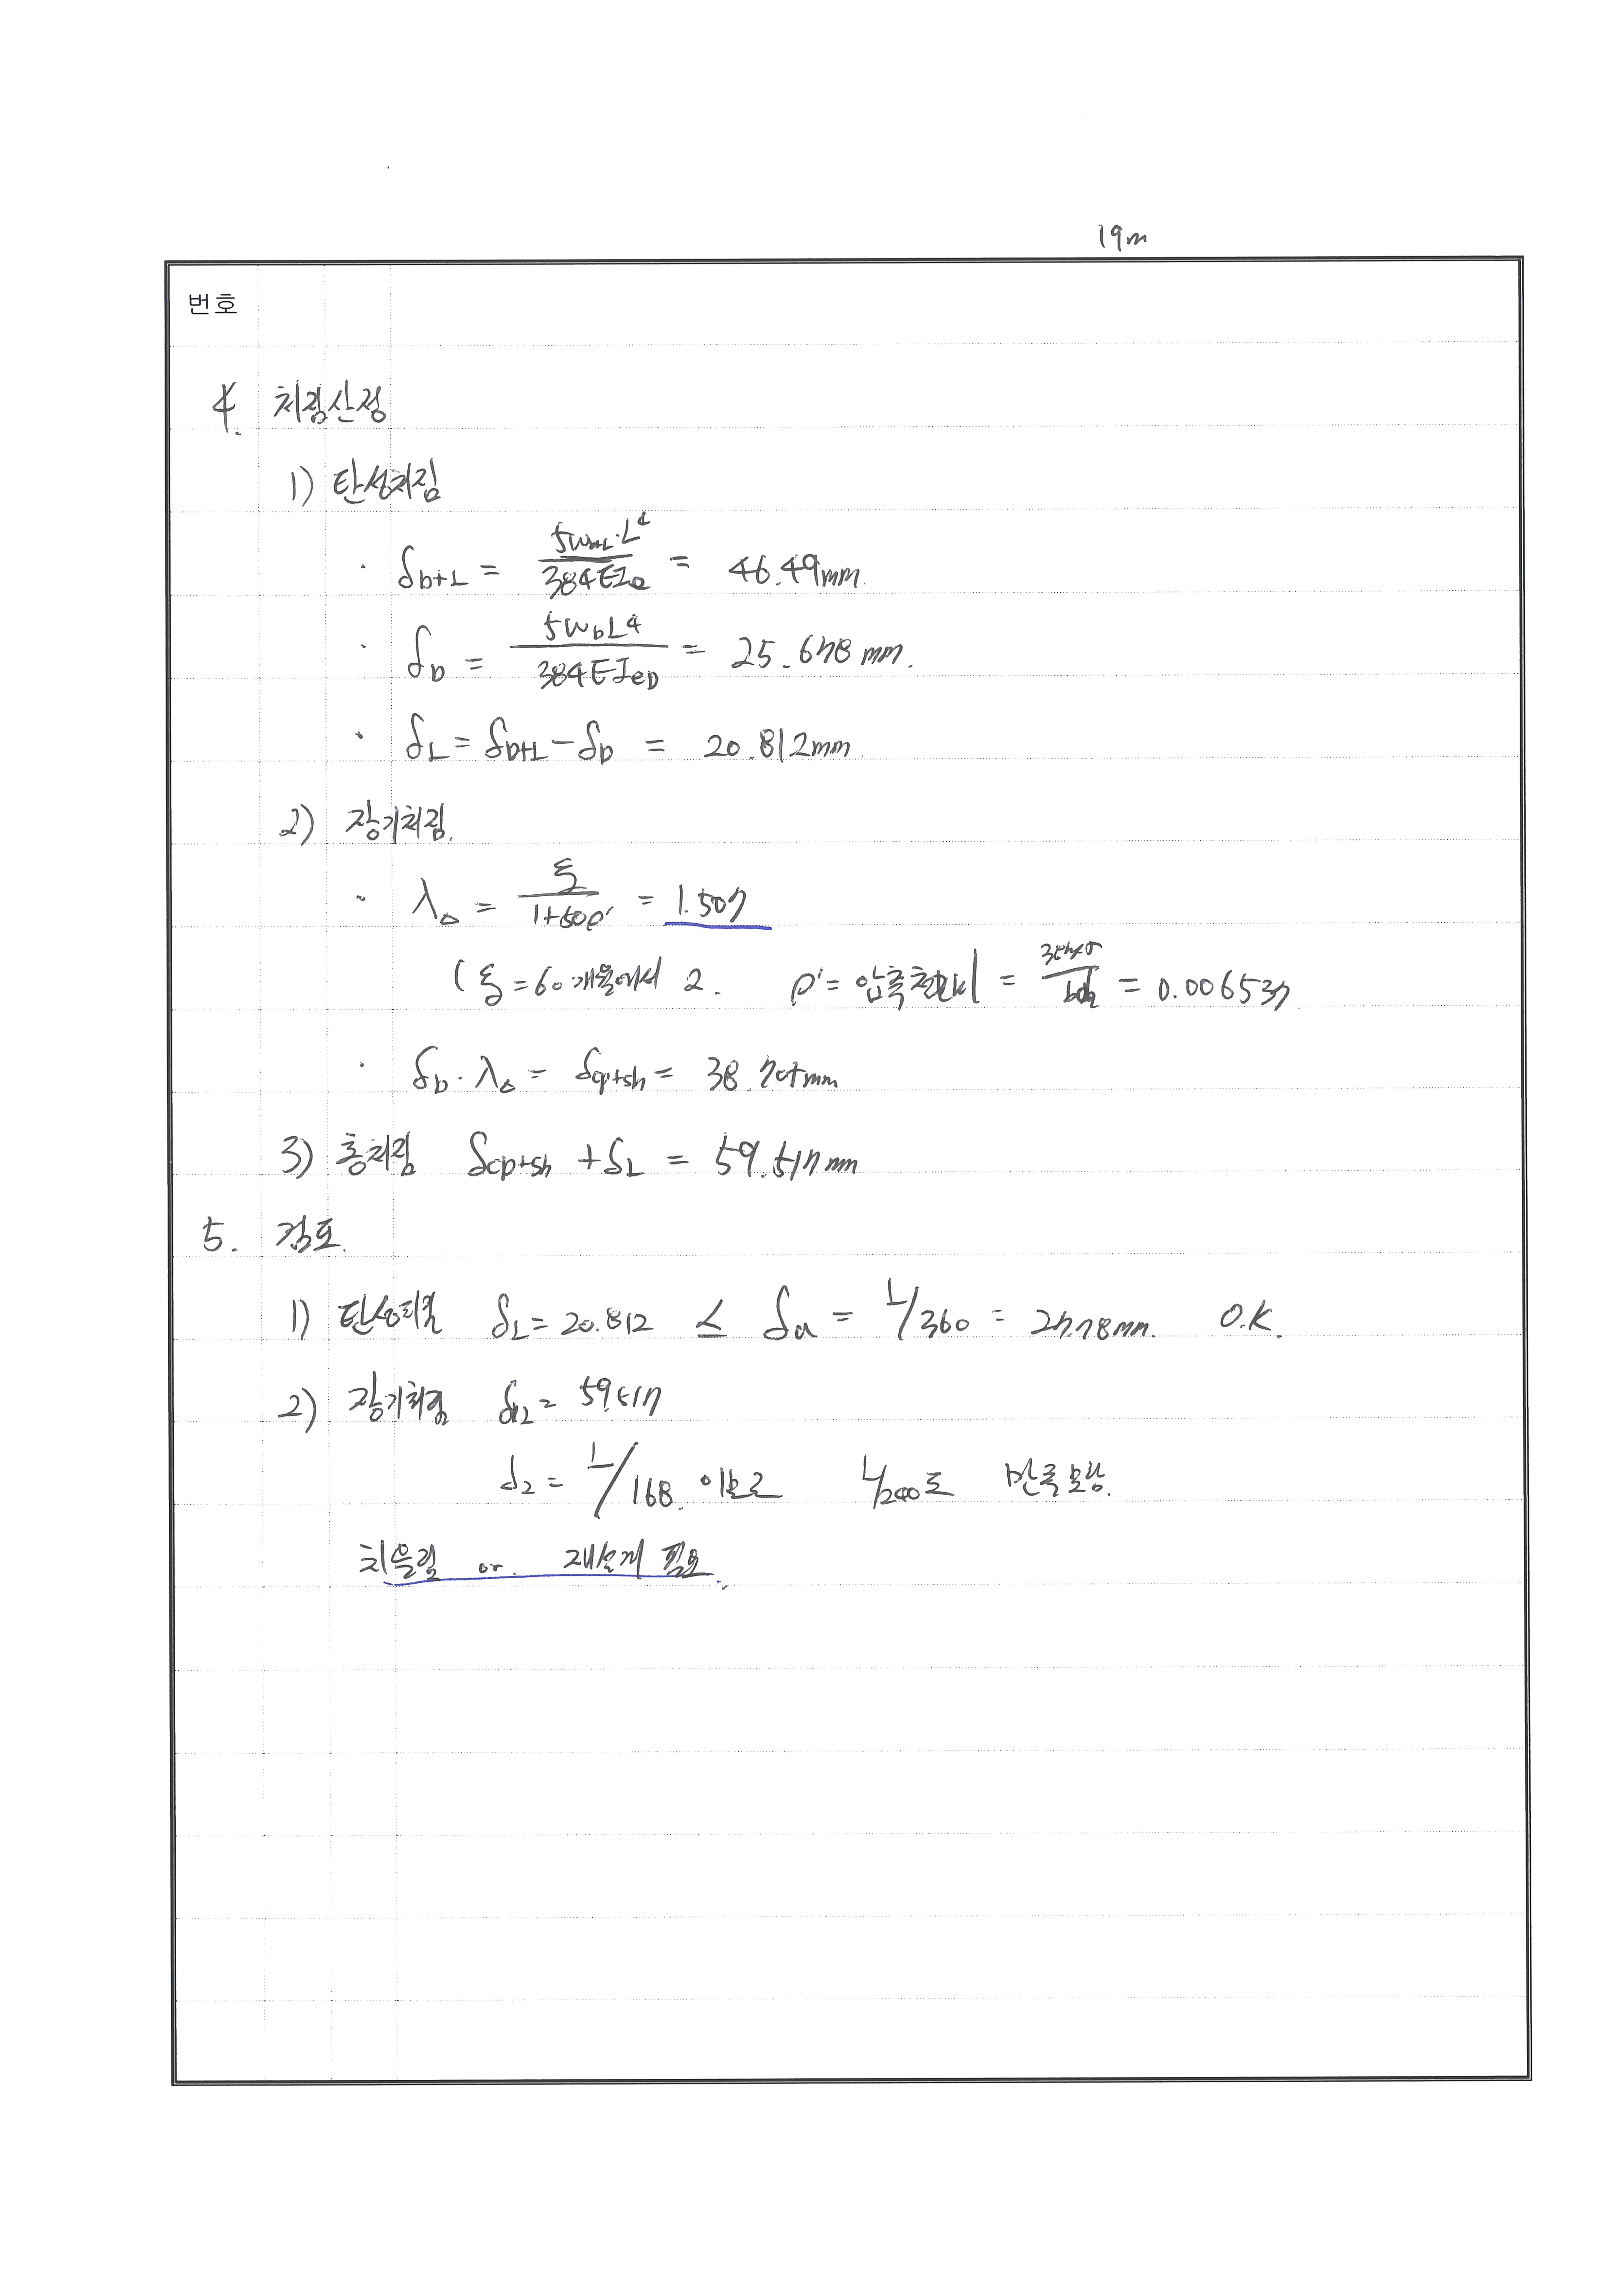 19m
번호
4. 처짐산정
1) 탄성처짐
· δD+L = 5WD+L·L⁴ / 384EIe = 46.49mm.
· δD = 5WDL⁴ / 384EIeD = 25.678mm.
· δL = δD+L - δD = 20.812mm
2) 장기처짐.
· λΔ = ξ / 1+50ρ' = 1.507
( ξ = 60개월에서 2. ρ' = 압축철근비 = / bd = 0.006537
· δD·λΔ = δcp+sh = 38.705mm
3) 총처짐 δcp+sh + δL = 59.517mm
5. 검토.
1) 탄성처짐 δL = 20.812 ≤ δa = L/360 = 27.78mm. O.K.
2) 장기처짐 = 59.517
δ2 = L/168. 이므로 L/200도 만족못함.
치올림 or. 재설계 필요.